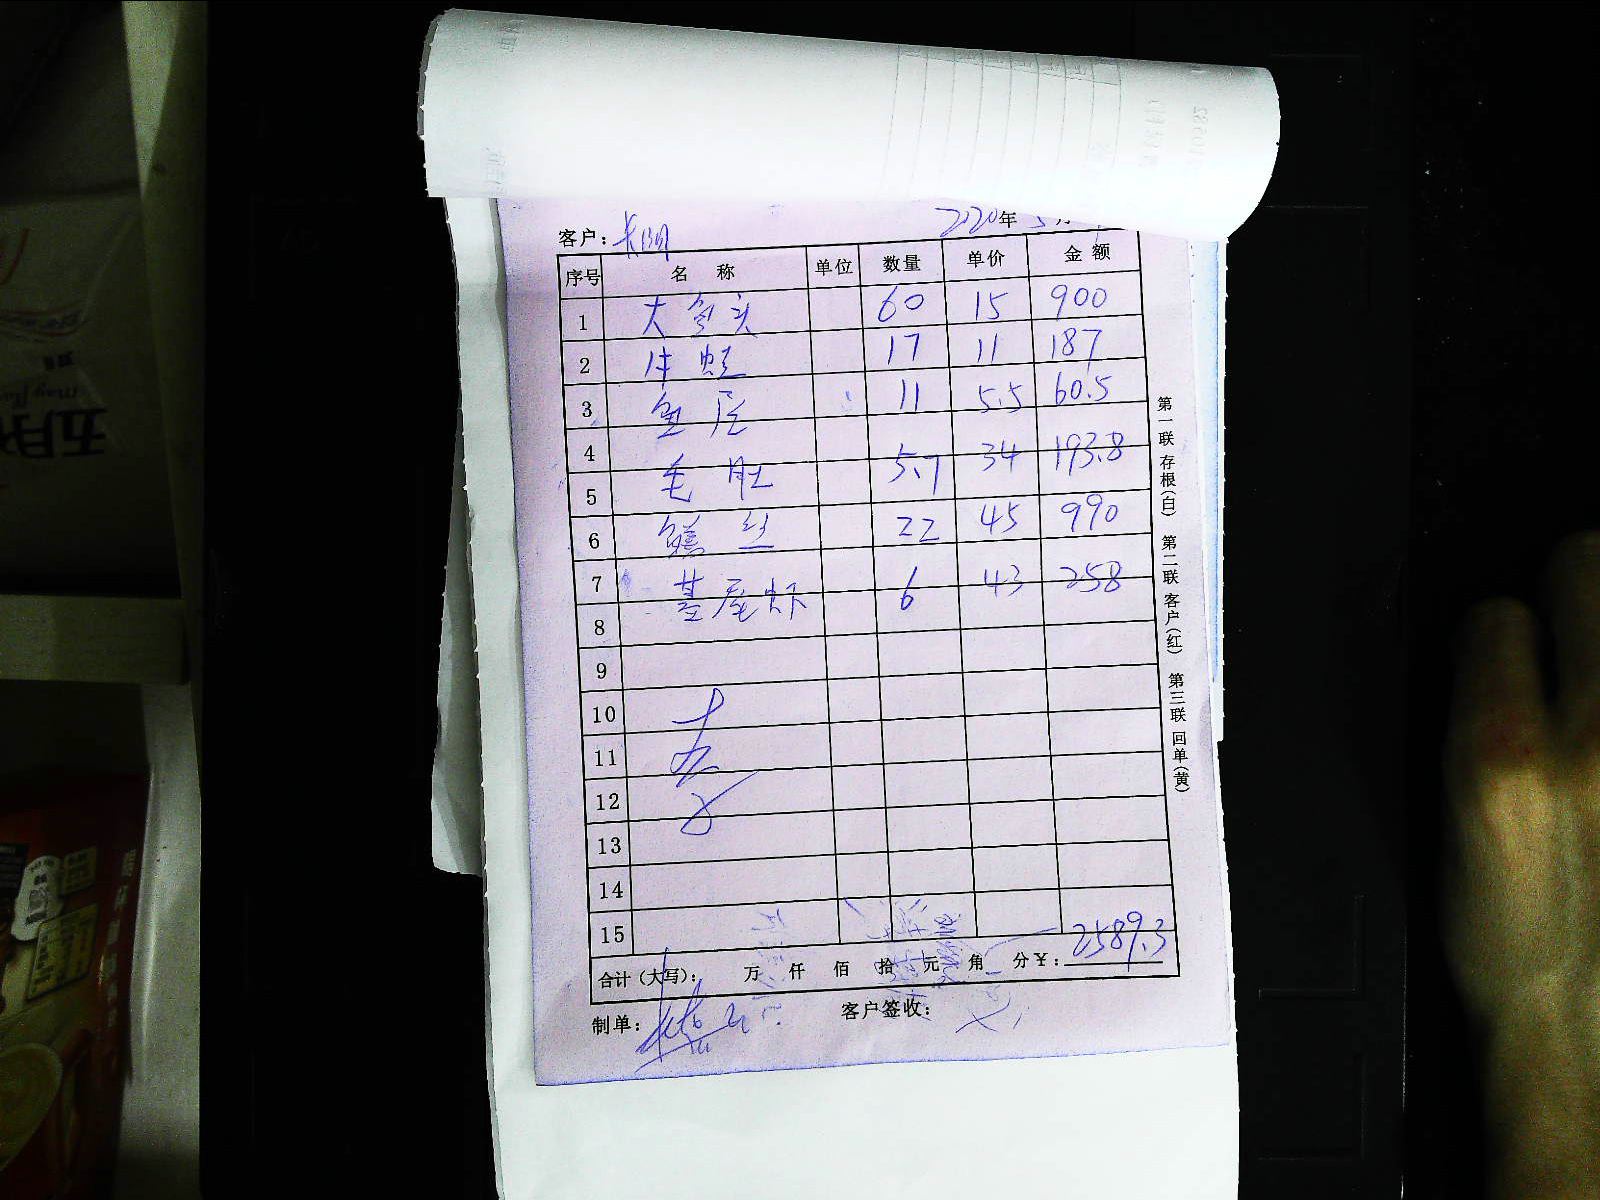 客户：
2020年5月
序号 名 称 单位 数量 单价 金 额
1 大鱼头 60 15 900
2 牛蛙 17 11 187
3 鱼尾 11 5.5 60.5
4
5 毛肚 5.7 34 193.8
6 鳝丝 22 45 990
7 基尾虾 6 43 258
8
9
10
11
12
13
14
15
合计（大写）： 万 仟 佰 拾 元 角 分￥：2589.3
制单： 客户签收：
第一联 存根（白） 第二联 客户（红） 第三联 回单（黄）
五月